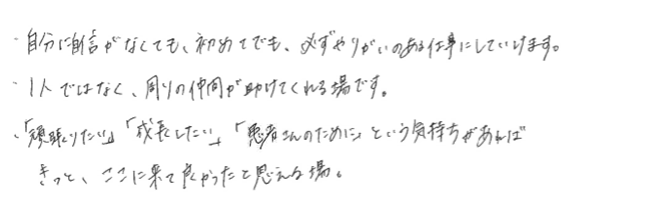 ・自分に自信がなくても、初めてでも、必ずやりがいのある仕事にしていけます。
・1人ではなく、周りの仲間が助けてくれる場です。
・「頑張りたい」「成長したい」「患者さんのために」という気持ちがあれば
きっと、ここに来て良かったと思える場。